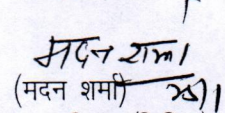 मदन शर्मा
(मदन शर्मा)